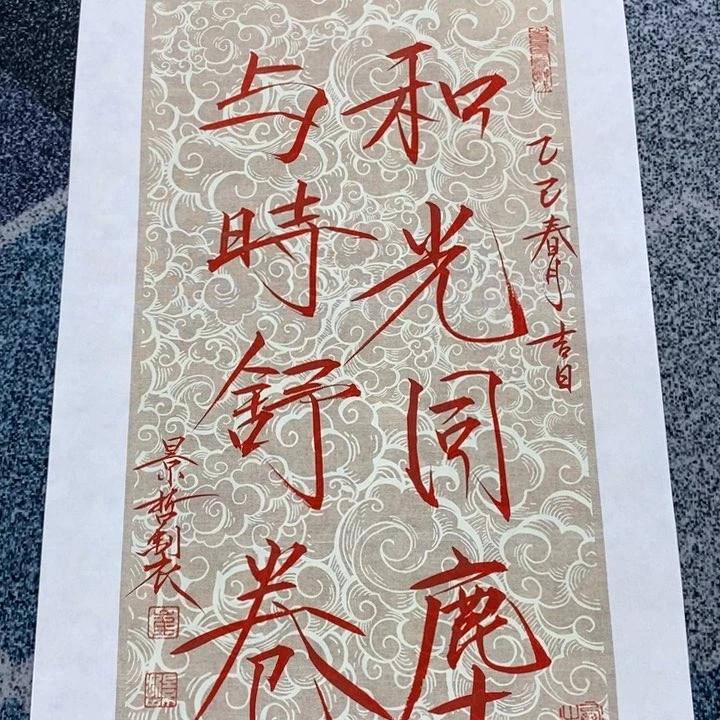 乙巳春月吉日
和光同塵
与時舒卷
景哲製